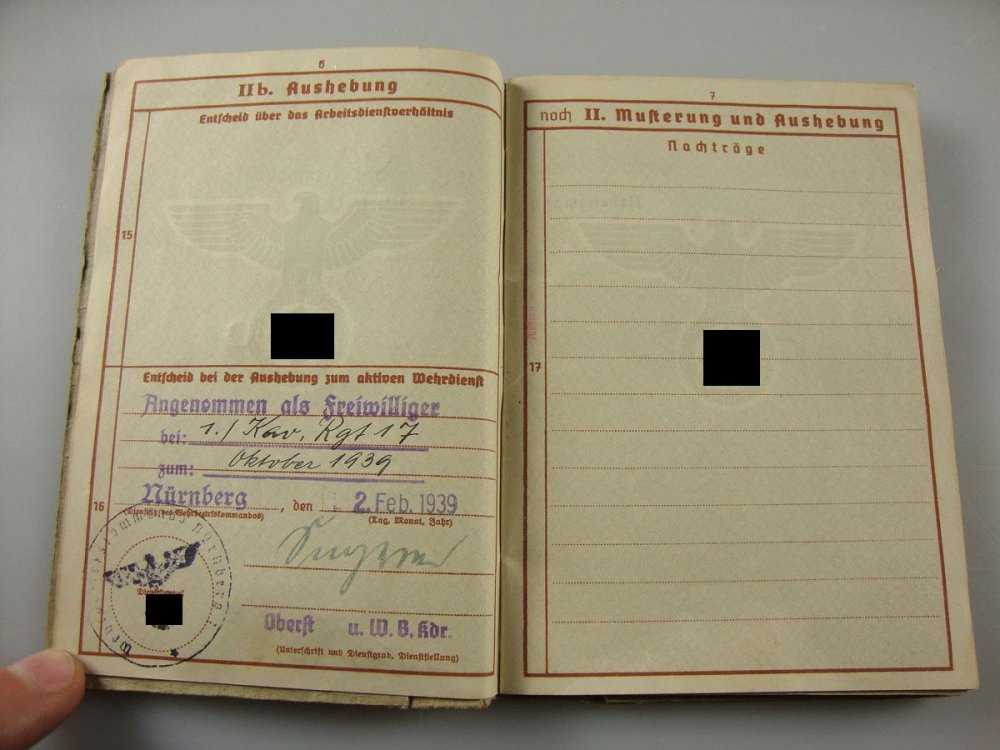 6
IIb. Aushebung
Entscheid über das Arbeitsdienstverhältnis
15
Entscheid bei der Aushebung zum aktiven Wehrdienst
Angenommen als Freiwilliger
bei: 1./ Kav. Rgt 17
zum: Oktober 1939
Nürnberg, den 2. Feb. 1939
(Dienstsitz des Wehrbezirkskommandos) (Tag, Monat, Jahr)
16
Oberst u. W. B. Kdr.
(Unterschrift und Dienstgrad, Dienststellung)
7
noch II. Musterung und Aushebung
Nachträge
17